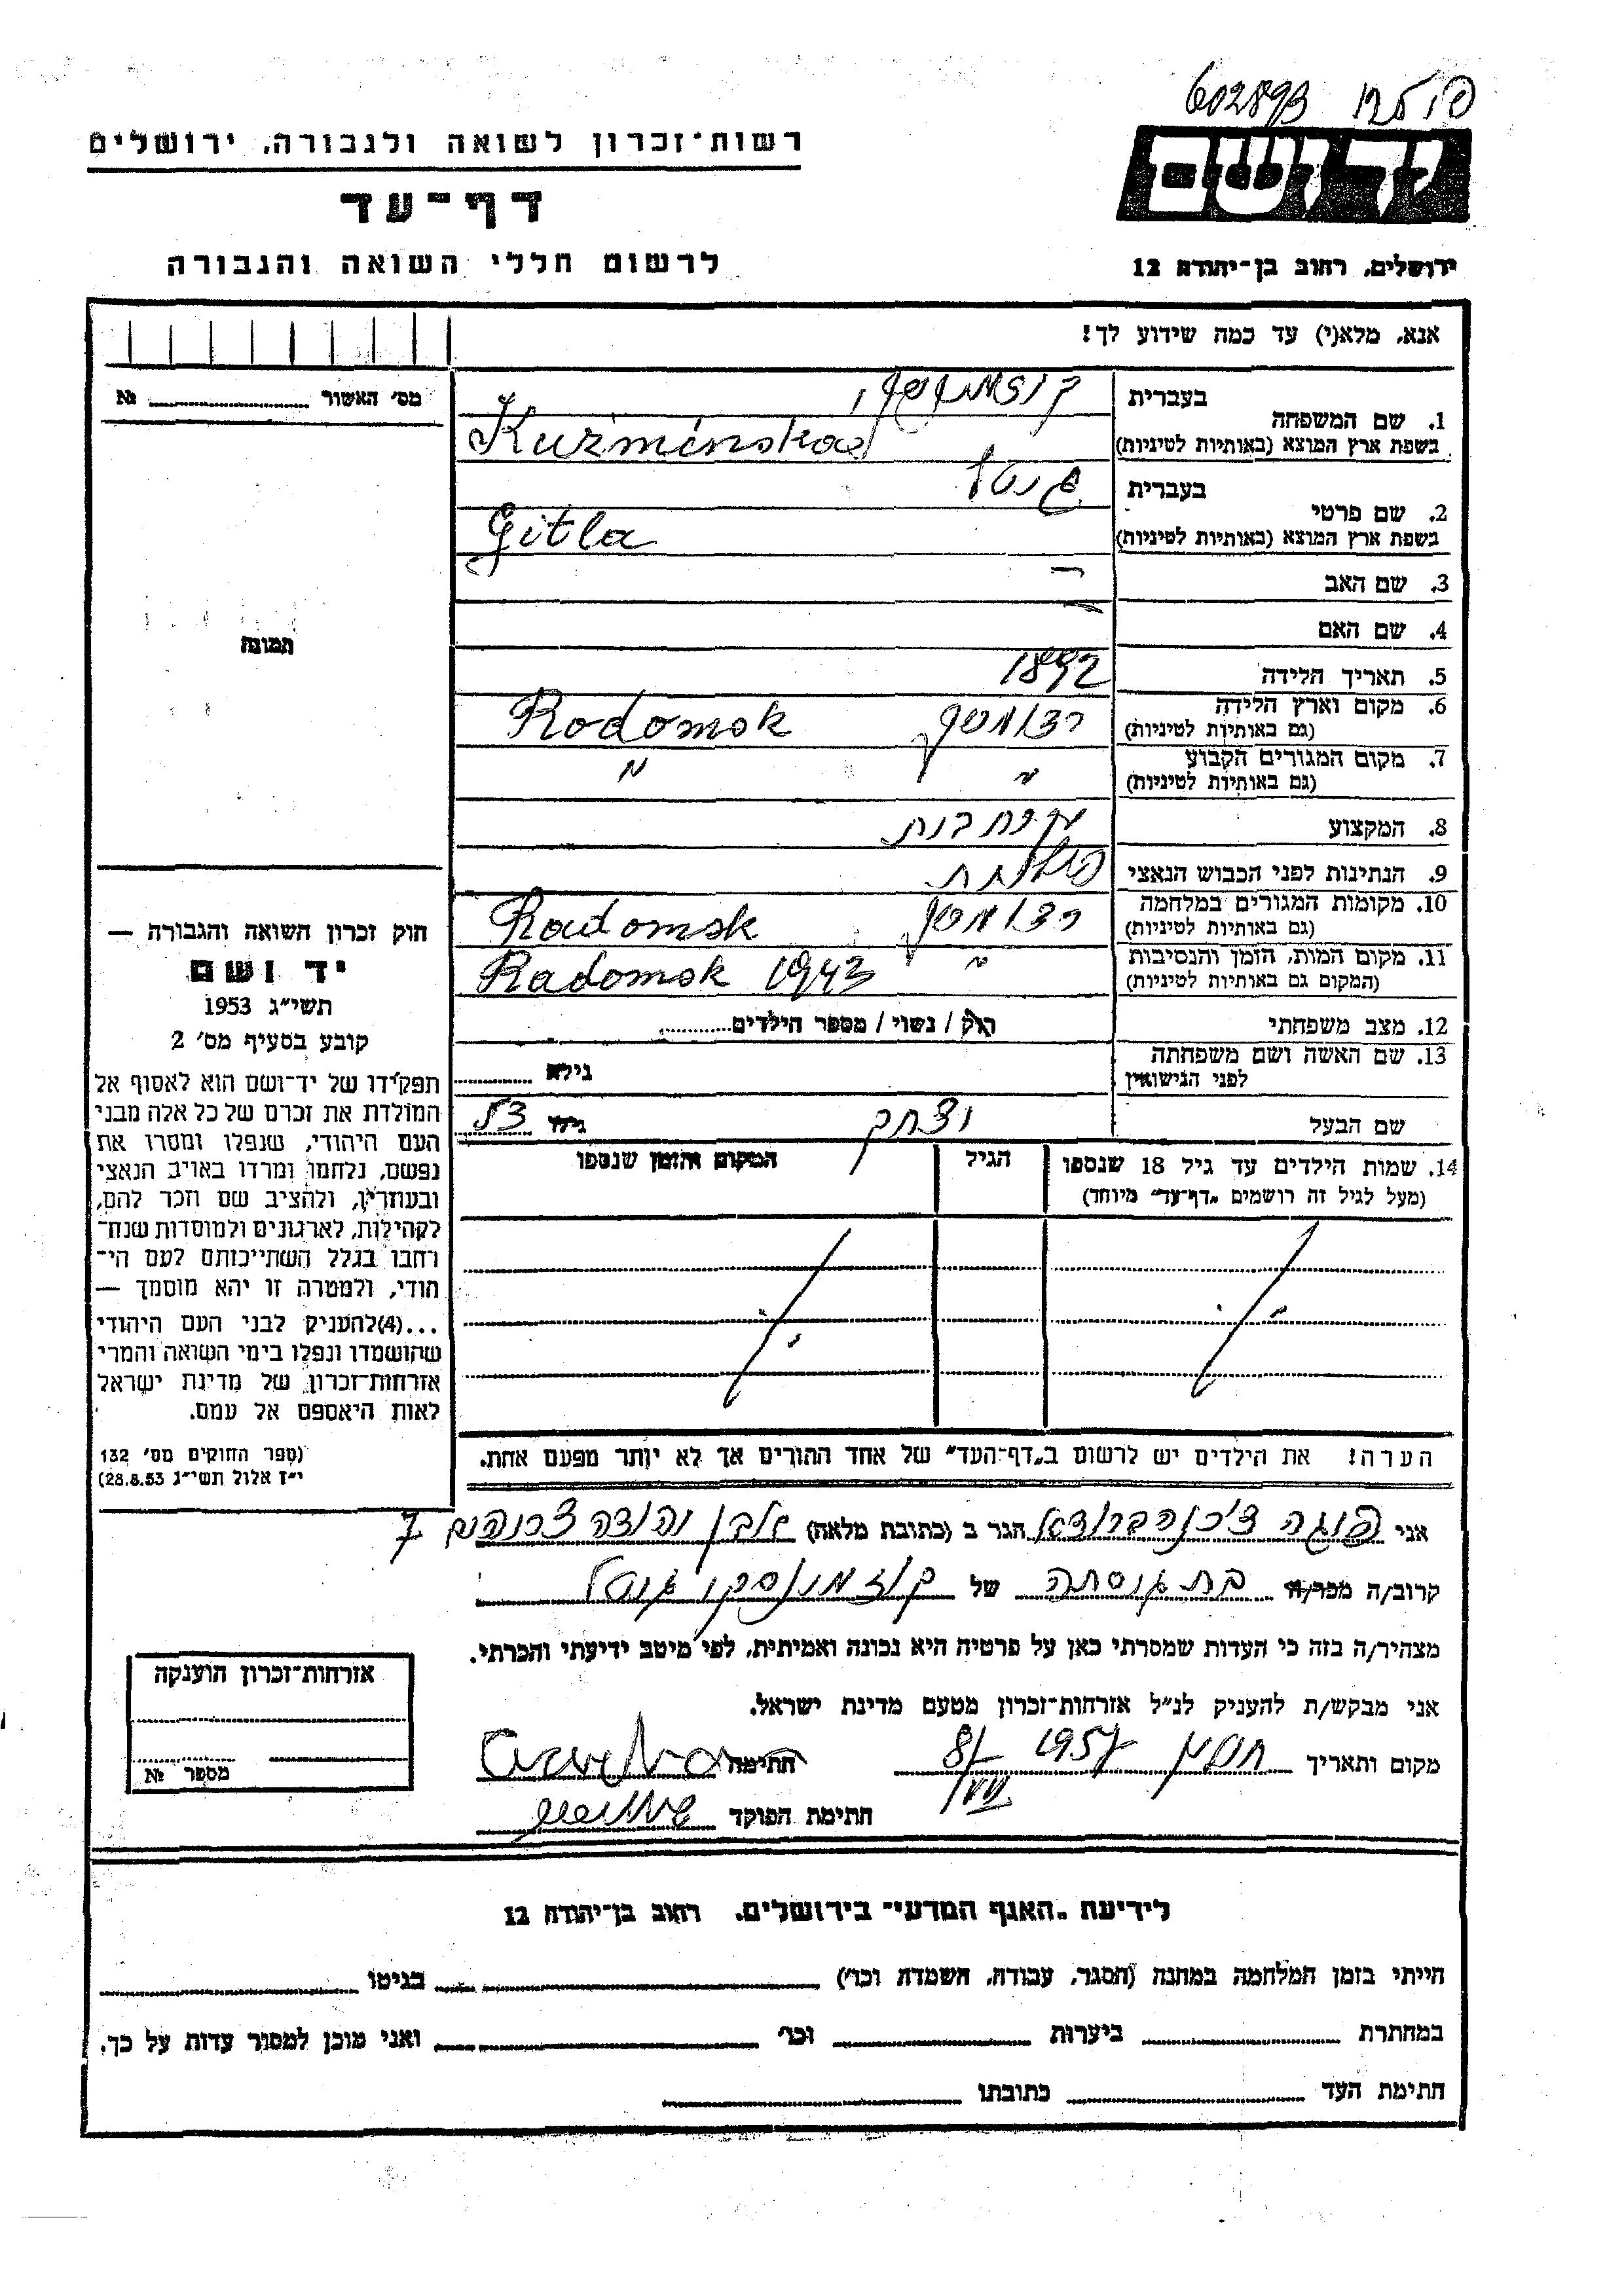 602893
רשות־זכרון לשואה ולגבורה, ירושלים
יד ושם
דף־עד
לרשום חללי השואה והגבורה
ירושלים, רחוב בן־יהודה 12
אנא, מלא(י) עד כמה שידוע לך!
מס׳ האשור № 
1. שם המשפחה
בעברית
בשפת ארץ המוצא (באותיות לטיניות) Kuźmińska
2. שם פרטי
בעברית גיטל
בשפת ארץ המוצא (באותיות לטיניות) Gitla
3. שם האב —
4. שם האם —
תמונה
5. תאריך הלידה 1892
6. מקום וארץ הלידה רדומסק Rodomsk
(גם באותיות לטיניות)
7. מקום המגורים הקבוע " "
(גם באותיות לטיניות)
8. המקצוע
9. הנתינות לפני הכבוש הנאצי פולנית
10. מקומות המגורים במלחמה רדומסק Radomsk
(גם באותיות לטיניות)
11. מקום המות, הזמן והנסיבות " Radomsk 1943
(המקום גם באותיות לטיניות)
12. מצב משפחתי רוק / נשוי / מספר הילדים
13. שם האשה ושם משפחתה
לפני הנישואין גילא
שם הבעל יצחק גילו 53
14. שמות הילדים עד גיל 18 שנספו הגיל המקום והזמן שנספו
(מעל לגיל זה רושמים „דף־עד״ מיוחד)
הערה! את הילדים יש לרשום ב„דף־העד״ של אחד ההורים אך לא יותר מפעם אחת.
חוק זכרון השואה והגבורה —
יד ושם
תשי״ג 1953
קובע בסעיף מס׳ 2
תפקידו של יד־ושם הוא לאסוף אל
המולדת את זכרם של כל אלה מבני
העם היהודי, שנפלו ומסרו את
נפשם, נלחמו ומרדו באויב הנאצי
ובעוזריו, ולהציב שם וזכר להם,
לקהילות, לארגונים ולמוסדות שנח־
רבו בגלל השתייכותם לעם הי־
הודי, ולמטרה זו יהא מוסמך —
...(4)להעניק לבני העם היהודי
שהושמדו ונפלו בימי השואה והמרי
אזרחות־זכרון של מדינת ישראל
לאות היאספם אל עמם.
(ספר החוקים מס׳ 132
י״ז אלול תשי״ג 28.8.53)
אני הגר ב (כתובת מלאה) 7
קרוב/ה מכר/ה בת של קוזמינסקי גיטל
מצהיר/ה בזה כי העדות שמסרתי כאן על פרטיה היא נכונה ואמיתית, לפי מיטב ידיעתי והכרתי.
אני מבקש/ת להעניק לנ״ל אזרחות־זכרון מטעם מדינת ישראל.
מקום ותאריך 8/VII 1957 חתימה
חתימת הפוקד
אזרחות־זכרון הוענקה
מספר №
לידיעת „האגף המדעי״ בירושלים, רחוב בן־יהודה 12
הייתי בזמן המלחמה במחנה (הסגר, עבודה, השמדה וכו׳) בגיטו
במחתרת ביערות וכו׳ ואני מוכן למסור עדות על כך.
חתימת העד כתובתו